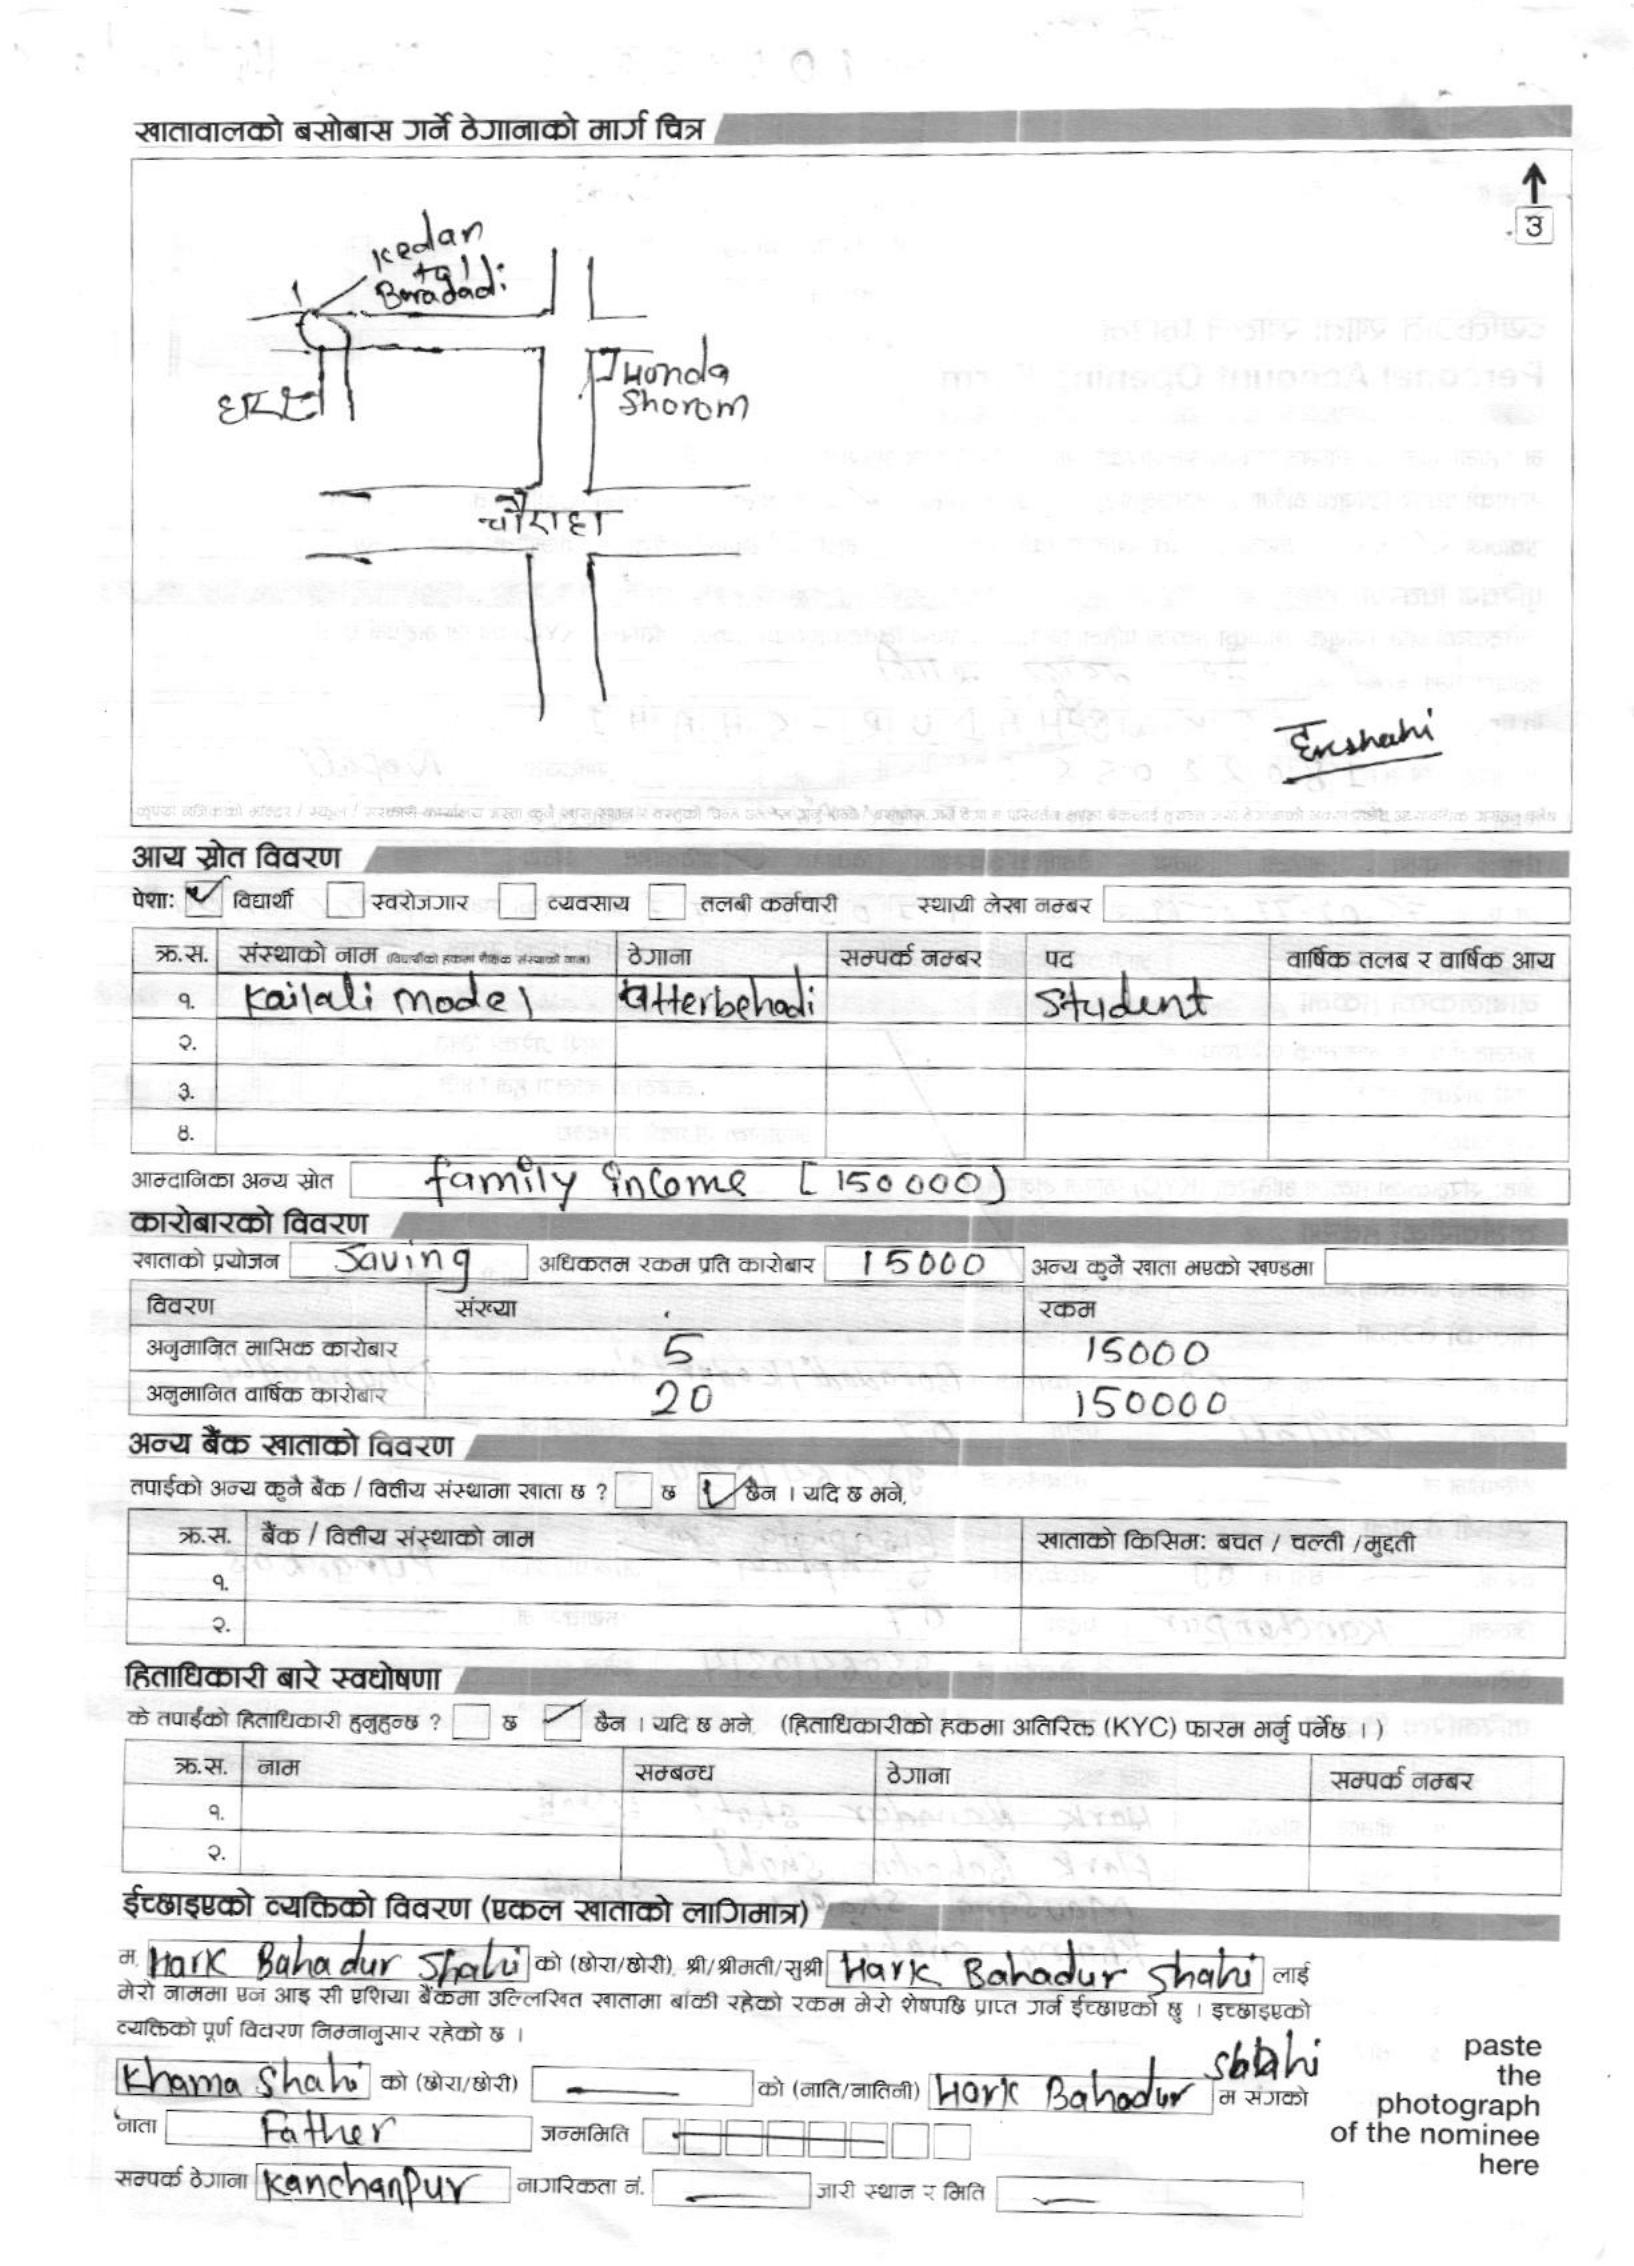 खातावालको बसोबास गर्ने ठेगानाको मार्ग चित्र
उ
Kedan
tal
Boradadi
Honda
Shorom
चौराहा
आय स्रोत विवरण
पेशा: विद्यार्थी स्वरोजगार व्यवसाय तलबी कर्मचारी स्थायी लेखा नम्बर
क्र.स. संस्थाको नाम (विद्यार्थीको हकमा शैक्षिक संस्थाको नाम) ठेगाना सम्पर्क नम्बर पद वार्षिक तलब र वार्षिक आय
१. Kailali model atterbehadi Student
२.
३.
४.
आम्दानिका अन्य स्रोत family income [150000)
कारोबारको विवरण
खाताको प्रयोजन Saving अधिकतम रकम प्रति कारोबार 15000 अन्य कुनै खाता भएको खण्डमा
विवरण संख्या रकम
अनुमानित मासिक कारोबार 5 15000
अनुमानित वार्षिक कारोबार 20 150000
अन्य बैंक खाताको विवरण
तपाईको अन्य कुनै बैंक / वित्तीय संस्थामा खाता छ ? छ छैन । यदि छ भने,
क्र.स. बैंक / वित्तीय संस्थाको नाम खाताको किसिम: बचत / चल्ती /मुद्दती
१.
२.
हिताधिकारी बारे स्वघोषणा
के तपाईंको हिताधिकारी हुनुहुन्छ ? छ छैन । यदि छ भने, (हिताधिकारीको हकमा अतिरिक्त (KYC) फारम भर्नु पर्नेछ । )
क्र.स. नाम सम्बन्ध ठेगाना सम्पर्क नम्बर
१.
२.
ईच्छाइएको व्यक्तिको विवरण (एकल खाताको लागिमात्र)
म, Hark Bahadur Shahi को (छोरा/छोरी), श्री/श्रीमती/सुश्री Hark Bahadur Shahi लाई
मेरो नाममा एन आइ सी एशिया बैंकमा उल्लिखित खातामा बाँकी रहेको रकम मेरो शेषपछि प्राप्त गर्न ईच्छाएको छु । इच्छाइएको
व्यक्तिको पूर्ण विवरण निम्नानुसार रहेको छ ।
Khama Shahi को (छोरा/छोरी) को (नाति/नातिनी) Hark Bahadur Shahi म संगको
नाता Father जन्ममिति
सम्पर्क ठेगाना Kanchanpur नागरिकता नं. जारी स्थान र मिति
paste
the
photograph
of the nominee
here